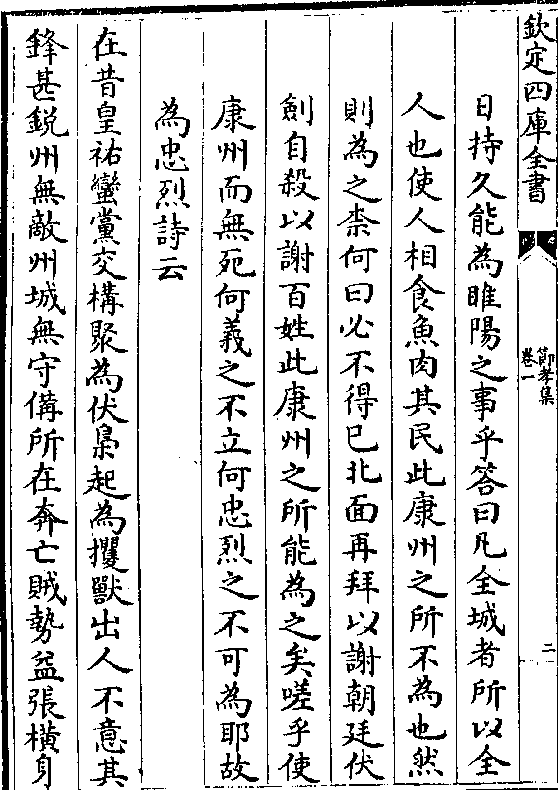 欽定四庫全書
節孝集
卷一
二
日持久能為睢陽之事乎答曰凡全城者所以全
人也使人相食魚肉其民此康州之所不為也然
則為之柰何曰必不得已北面再拜以謝朝廷伏
劍自殺以謝百姓此康州之所能為之矣嗟乎使
康州而無死何義之不立何忠烈之不可為耶故
為忠烈詩云
在昔皇祐蠻黨交構聚為伏梟起為攫獸出人不意其
鋒甚鋭州無敵州城無守備所在奔亡賊勢益張橫身